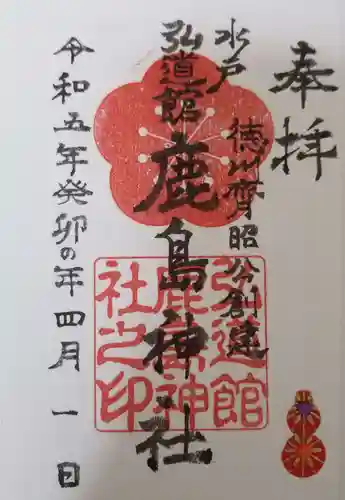 奉拝
水戸
徳川斉昭公創建
弘道館
鹿島神社
弘道館
鹿島神
社之印
令和五年癸卯の年四月一日